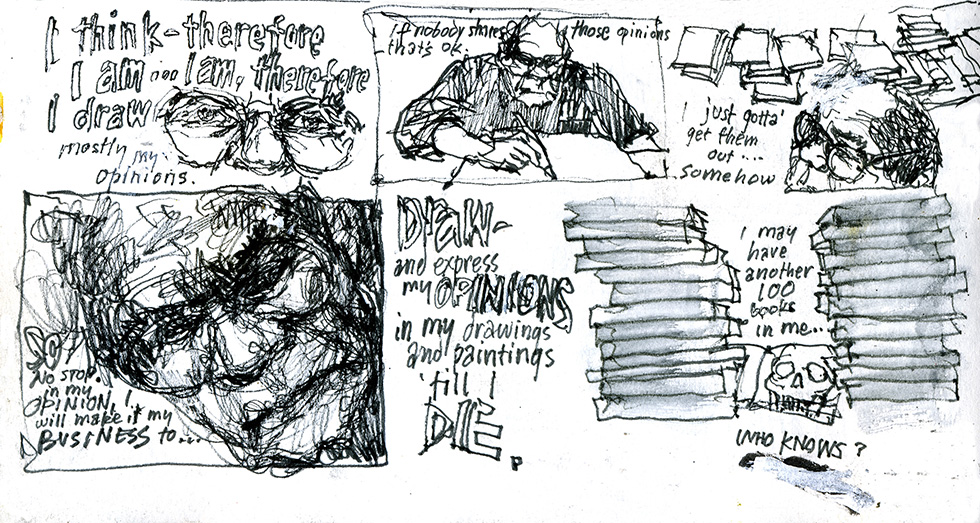 I think-therefore
I am... I am, therefore
I draw
mostly
my
opinions.
If nobody shares those opinions
that's ok.
I just gotta'
get them
out...
somehow
SO
NO STOP.
in my
OPINION, I
will make it my
BUSINESS to...
DRAW-
and express
my OPINIONS
in my drawings
and paintings
'till I
DIE.
I may
have
another
100
books
in me...
WHO KNOWS?